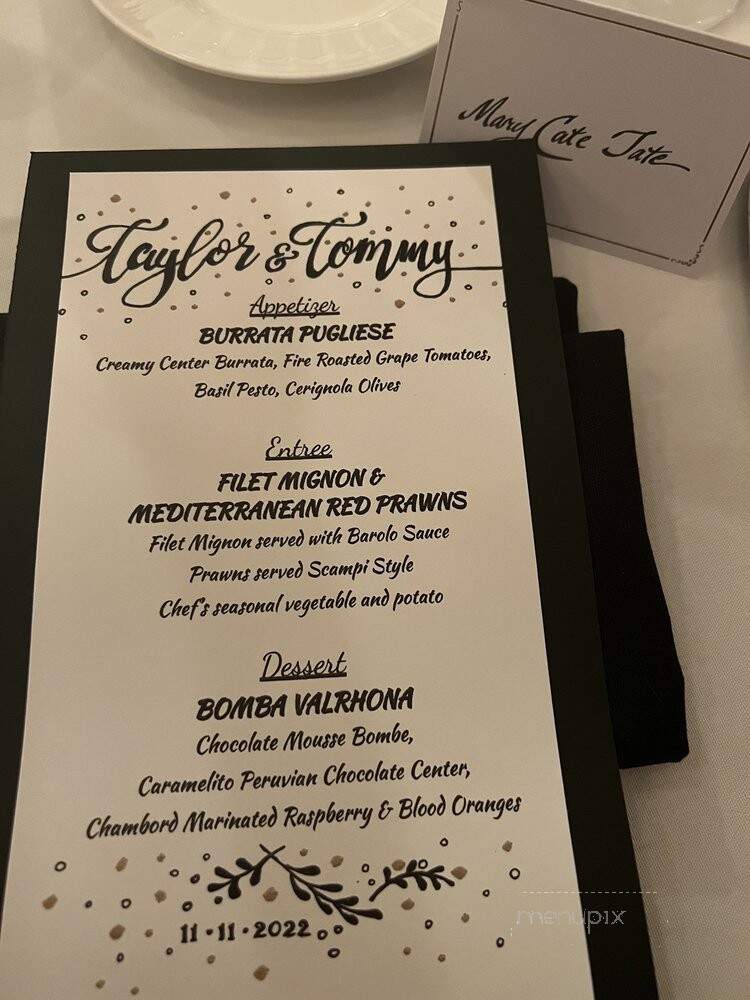 Mary Cate Tate
Taylor & Tommy
Appetizer
BURRATA PUGLIESE
Creamy Center Burrata, Fire Roasted Grape Tomatoes,
Basil Pesto, Cerignola Olives
Entree
FILET MIGNON &
MEDITERRANEAN RED PRAWNS
Filet Mignon served with Barolo Sauce
Prawns served Scampi Style
Chef's seasonal vegetable and potato
Dessert
BOMBA VALRHONA
Chocolate Mousse Bombe,
Caramelito Peruvian Chocolate Center,
Chambord Marinated Raspberry & Blood Oranges
11•11•2022
menupix